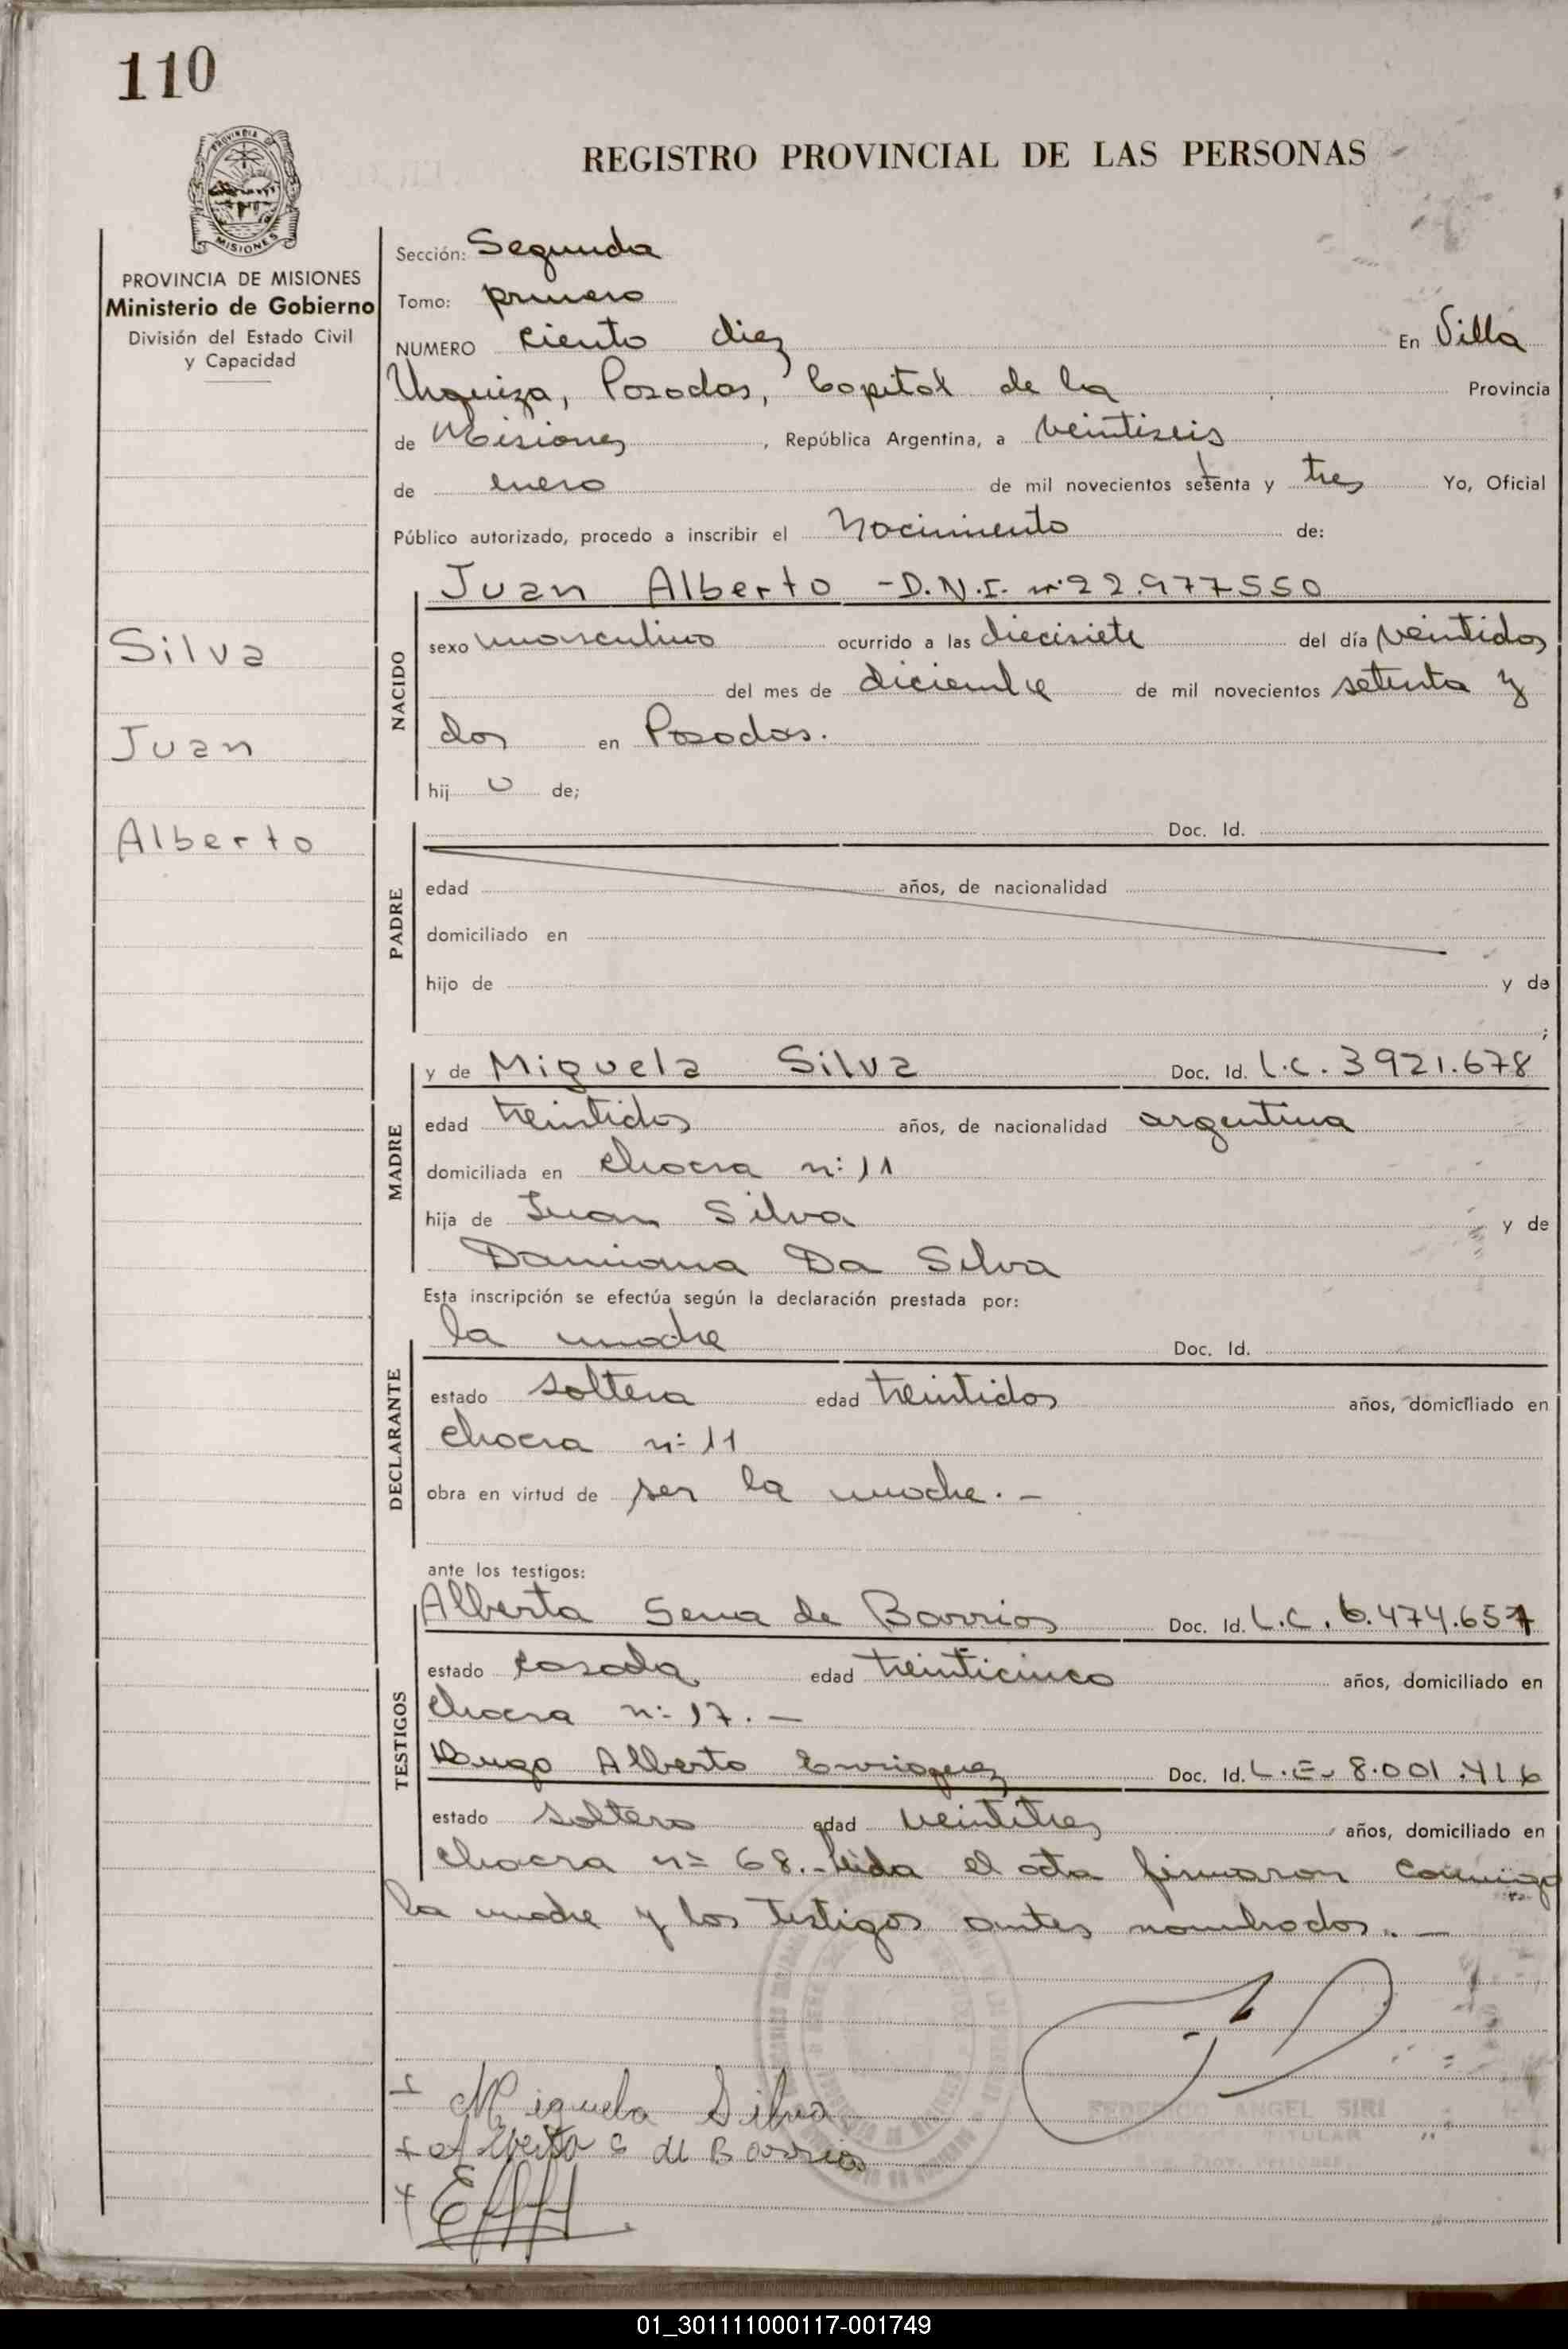 110
PROVINCIA DE
MISIONES
REGISTRO PROVINCIAL DE LAS PERSONAS
PROVINCIA DE MISIONES
Ministerio de Gobierno
División del Estado Civil
y Capacidad
Silva
Juan
Alberto
Sección: Segunda
Tomo: primero
NUMERO ciento diez En Villa
Urquiza, Posadas, Capital de la Provincia
de Misiones, República Argentina, a veintiseis
de enero de mil novecientos setenta y tres Yo, Oficial
Público autorizado, procedo a inscribir el Nacimiento de:
NACIDO
Juan Alberto - D.N.I. nº 22.977550
sexo masculino ocurrido a las diecisiete del día veintidos
del mes de diciembre de mil novecientos setenta y
dos en Posadas.
hij o de;
PADRE
Doc. Id.
edad años, de nacionalidad
domiciliado en
hijo de y de
;
MADRE
y de Miguela Silva Doc. Id. L.C. 3921.678
edad treintidos años, de nacionalidad argentina
domiciliada en chacra n: 11
hija de Juan Silva y de
Damiana Da Silva
Esta inscripción se efectúa según la declaración prestada por:
DECLARANTE
la madre Doc. Id.
estado soltera edad treintidos años, domiciliado en
chacra n: 11
obra en virtud de ser la madre. -
ante los testigos:
TESTIGOS
Alberta Sena de Barrios Doc. Id. L.C. 6.474.657
estado casada edad treinticinco años, domiciliado en
chacra n: 17. -
Hugo Alberto Enriquez Doc. Id. L.E. 8.001.416
estado soltero edad veintitres años, domiciliado en
chacra n= 68.- leida el acta firmaron conmigo
la madre y los testigos antes nombrados. -
Miguela Silva
Alberta S de Barrios
FEDERICO ANGEL SIRI
TITULAR
01_301111000117-001749